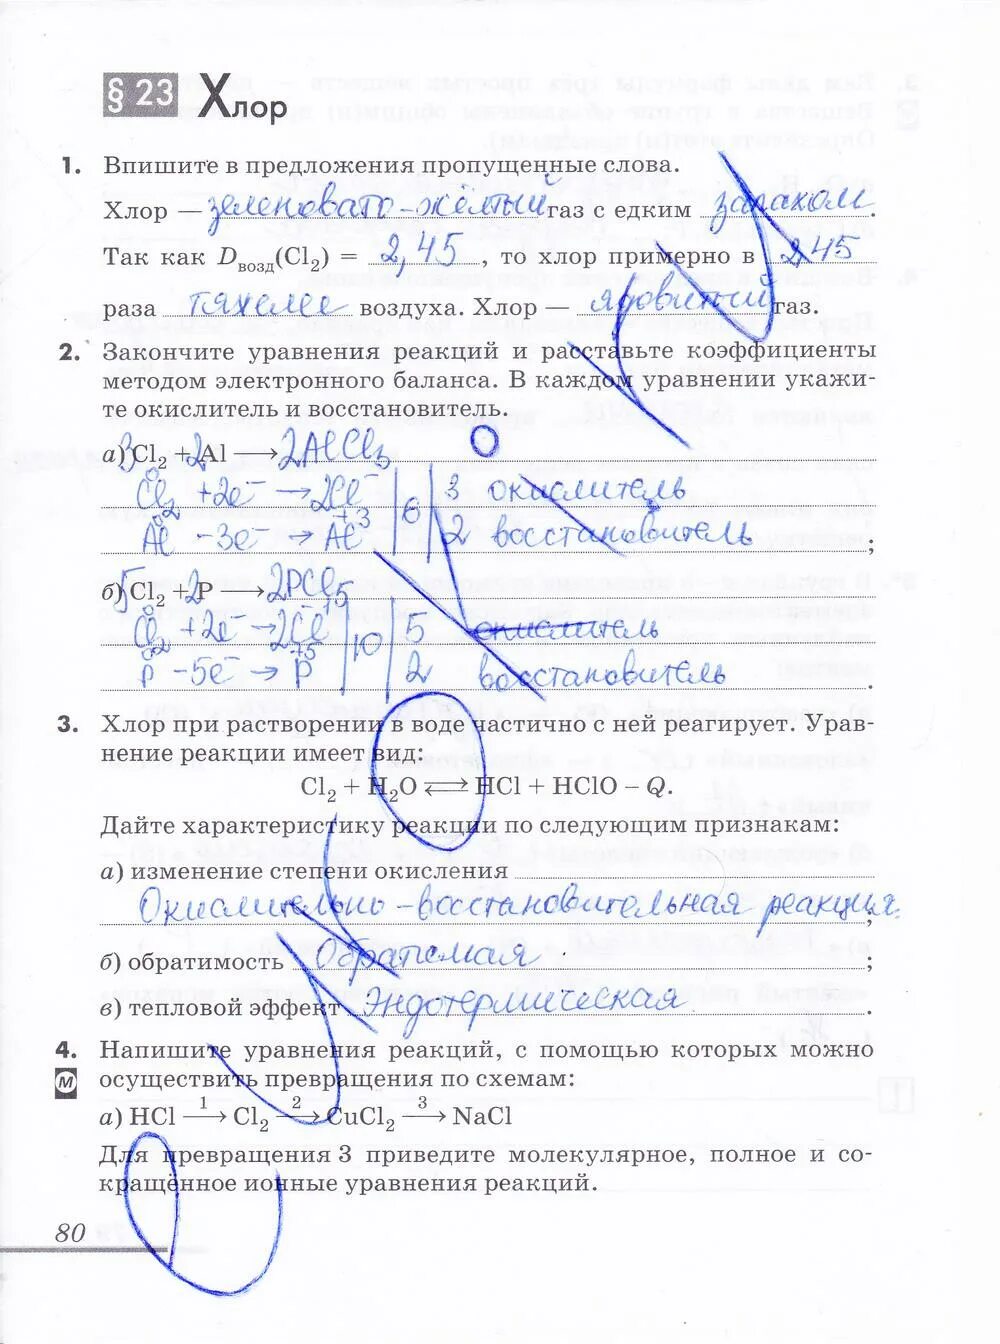 § 23 Хлор
1. Впишите в предложения пропущенные слова.
Хлор — зеленовато-жёлтый газ с едким запахом.
Так как Dвозд(Cl₂) = 2,45, то хлор примерно в 2,45
раза тяжелее воздуха. Хлор — ядовитый газ.
2. Закончите уравнения реакций и расставьте коэффициенты
методом электронного баланса. В каждом уравнении укажи-
те окислитель и восстановитель.
а) 3Cl₂ + 2Al ⟶ 2AlCl₃
Cl₂⁰ + 2e⁻ → 2Cl⁻ | 6 | 3 окислитель
Al⁰ - 3e⁻ → Al⁺³ | | 2 восстановитель;
б) 5Cl₂ + 2P ⟶ 2PCl₅
Cl₂⁰ + 2e⁻ → 2Cl⁻ | 10 | 5 окислитель
P⁰ - 5e⁻ → P⁺⁵ | | 2 восстановитель.
3. Хлор при растворении в воде частично с ней реагирует. Урав-
нение реакции имеет вид:
Cl₂ + H₂O ⇄ HCl + HClO – Q.
Дайте характеристику реакции по следующим признакам:
а) изменение степени окисления
Окислительно-восстановительная реакция;
б) обратимость Обратимая;
в) тепловой эффект Эндотермическая.
4. Напишите уравнения реакций, с помощью которых можно
М осуществить превращения по схемам:
а) HCl —1→ Cl₂ —2→ CuCl₂ —3→ NaCl
Для превращения 3 приведите молекулярное, полное и со-
кращённое ионные уравнения реакций.
80